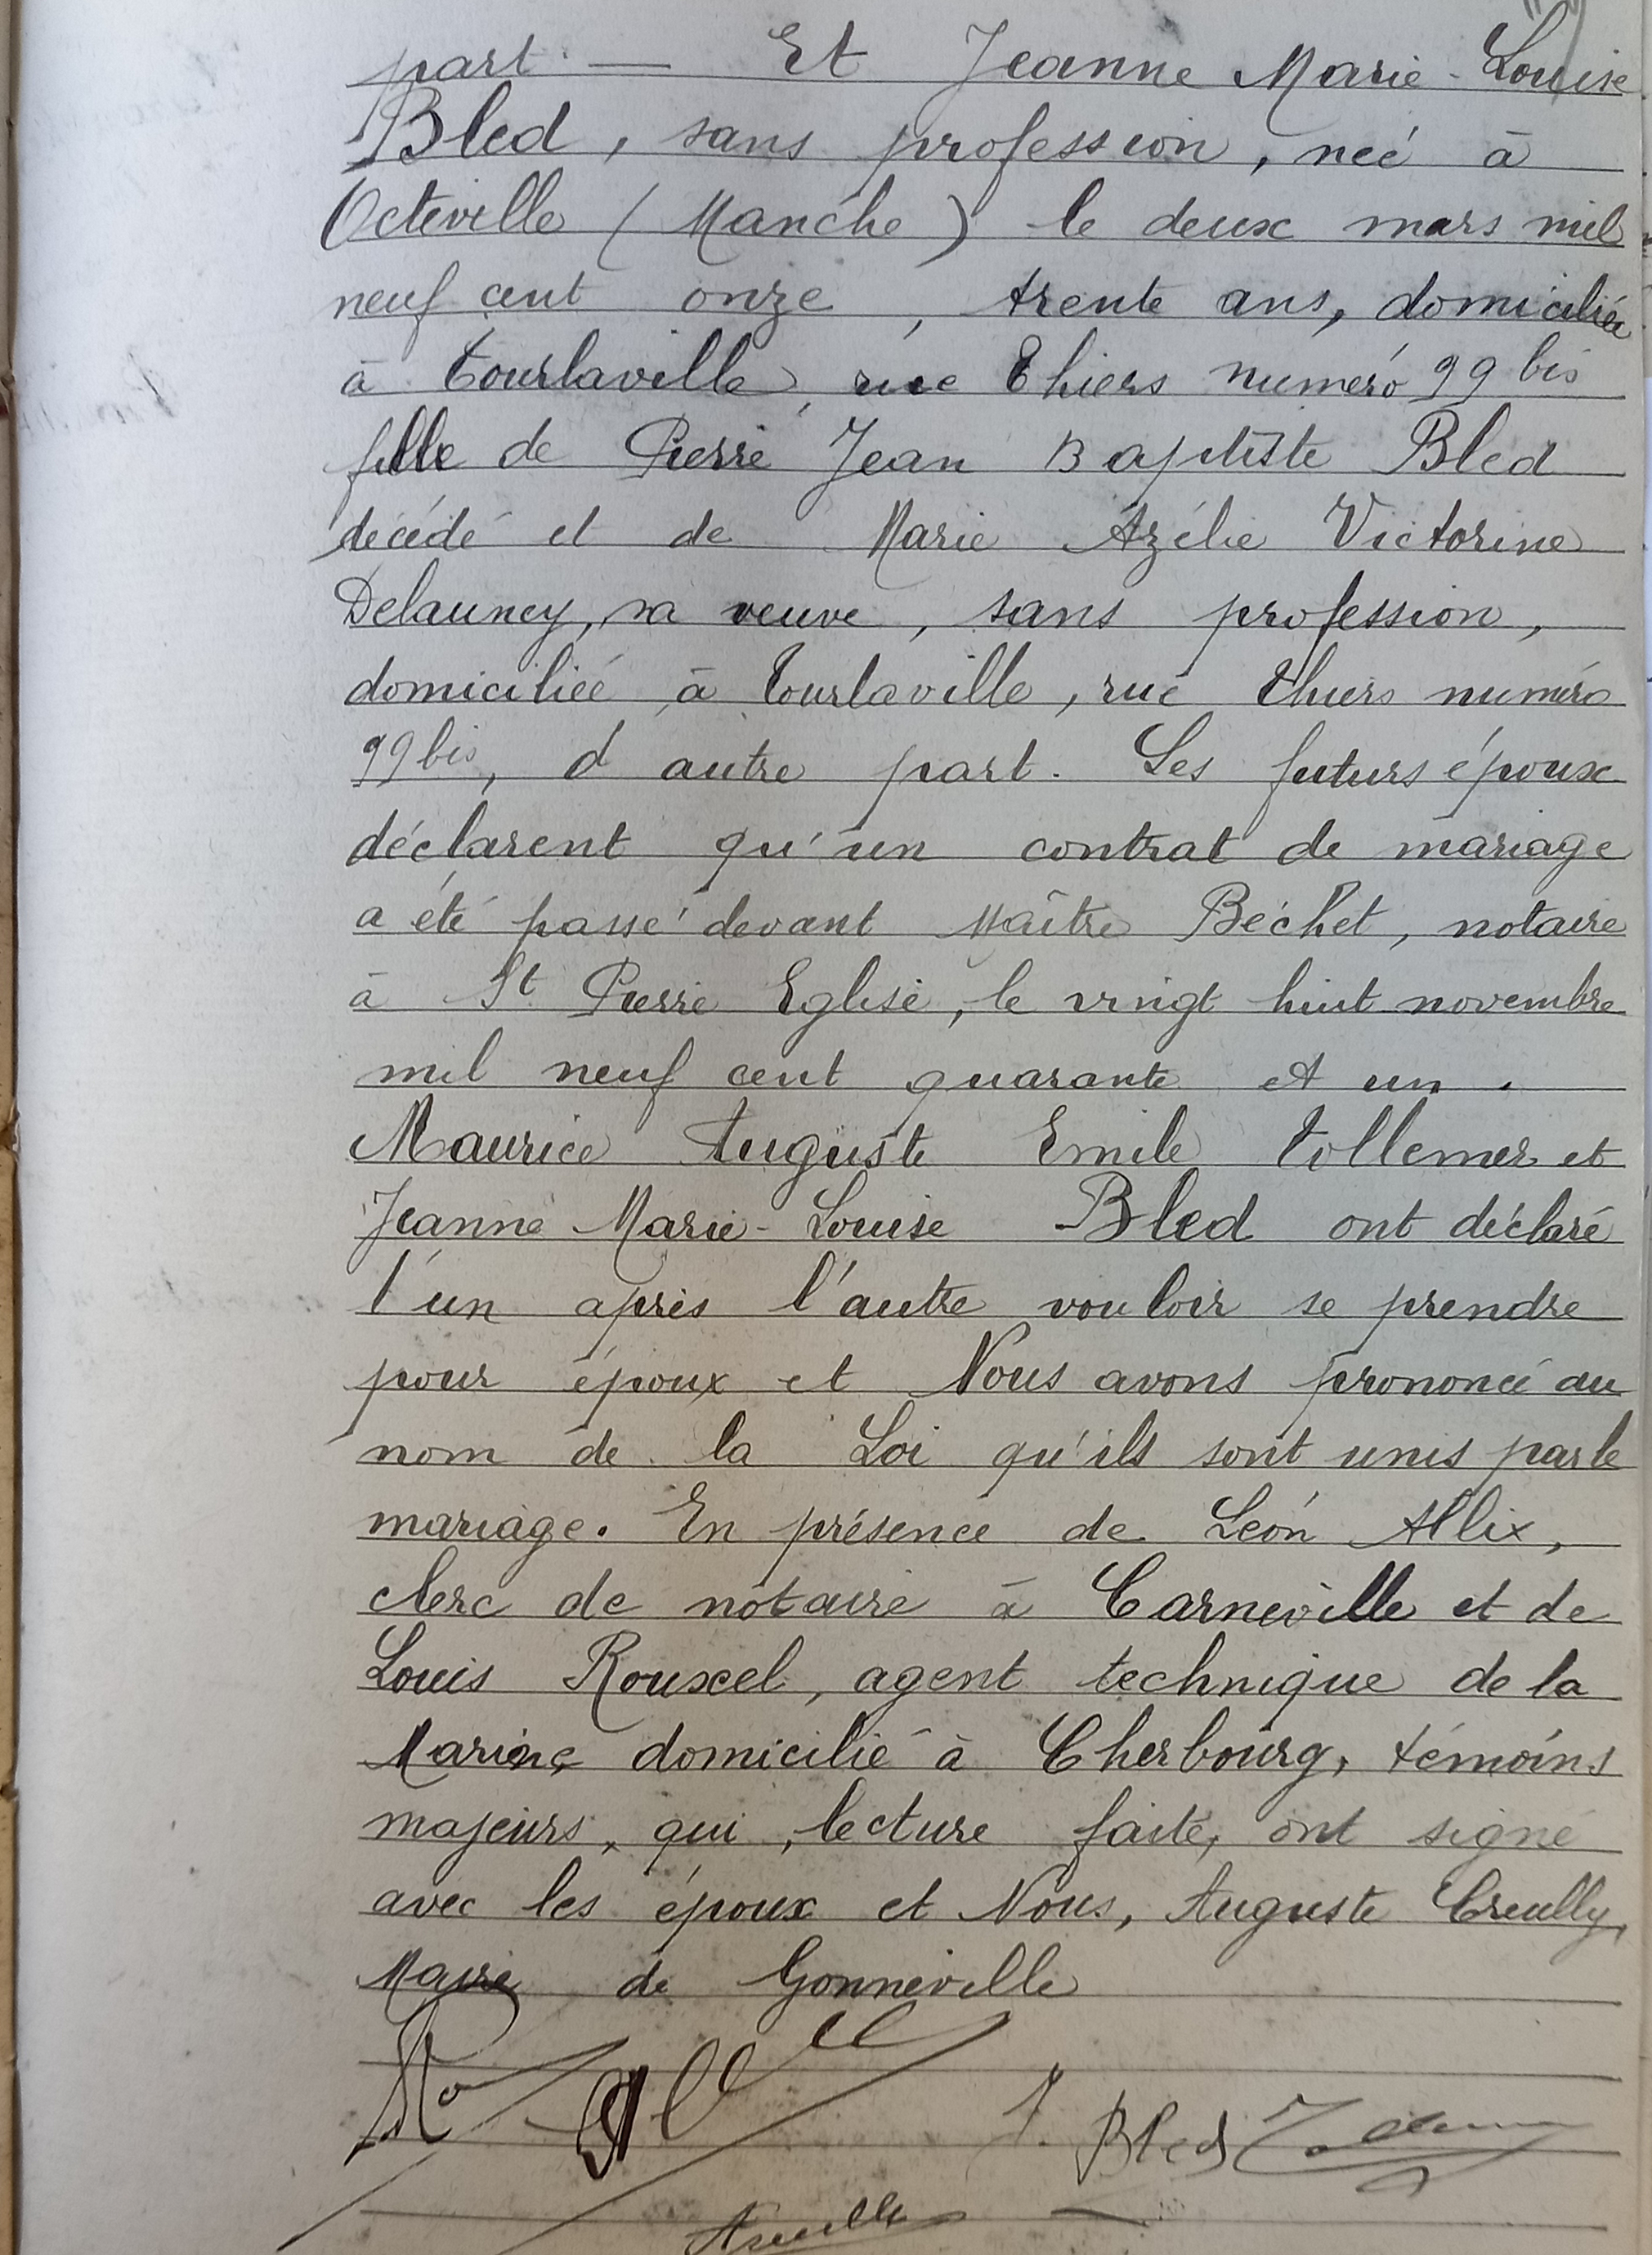 part. — Et Jeanne Marie-Louise
Bled, sans profession, née à
Octeville (Manche) le deux mars mil
neuf cent onze, trente ans, domiciliée
à Tourlaville, rue Thiers numéro 99 bis
fille de Pierre Jean Baptiste Bled
décédé et de Marie Azélie Victorine
Delauney, sa veuve, sans profession,
domiciliée à Tourlaville, rue Thiers numéro
99 bis, d'autre part. Les futurs époux
déclarent qu'un contrat de mariage
a été passé devant Maître Béchet, notaire
à St Pierre Eglise, le vingt huit novembre
mil neuf cent quarante et un.
Maurice Auguste Emile Tollemer et
Jeanne Marie-Louise Bled ont déclaré
l'un après l'autre vouloir se prendre
pour époux et Nous avons prononcé au
nom de la Loi qu'ils sont unis par le
mariage. En présence de Léon Allix,
clerc de notaire à Carneville et de
Louis Rouxel, agent technique de la
Marine domicilié à Cherbourg, témoins
majeurs, qui, lecture faite, ont signé
avec les époux et Nous, Auguste Creully,
Maire de Gonneville
J. Bled